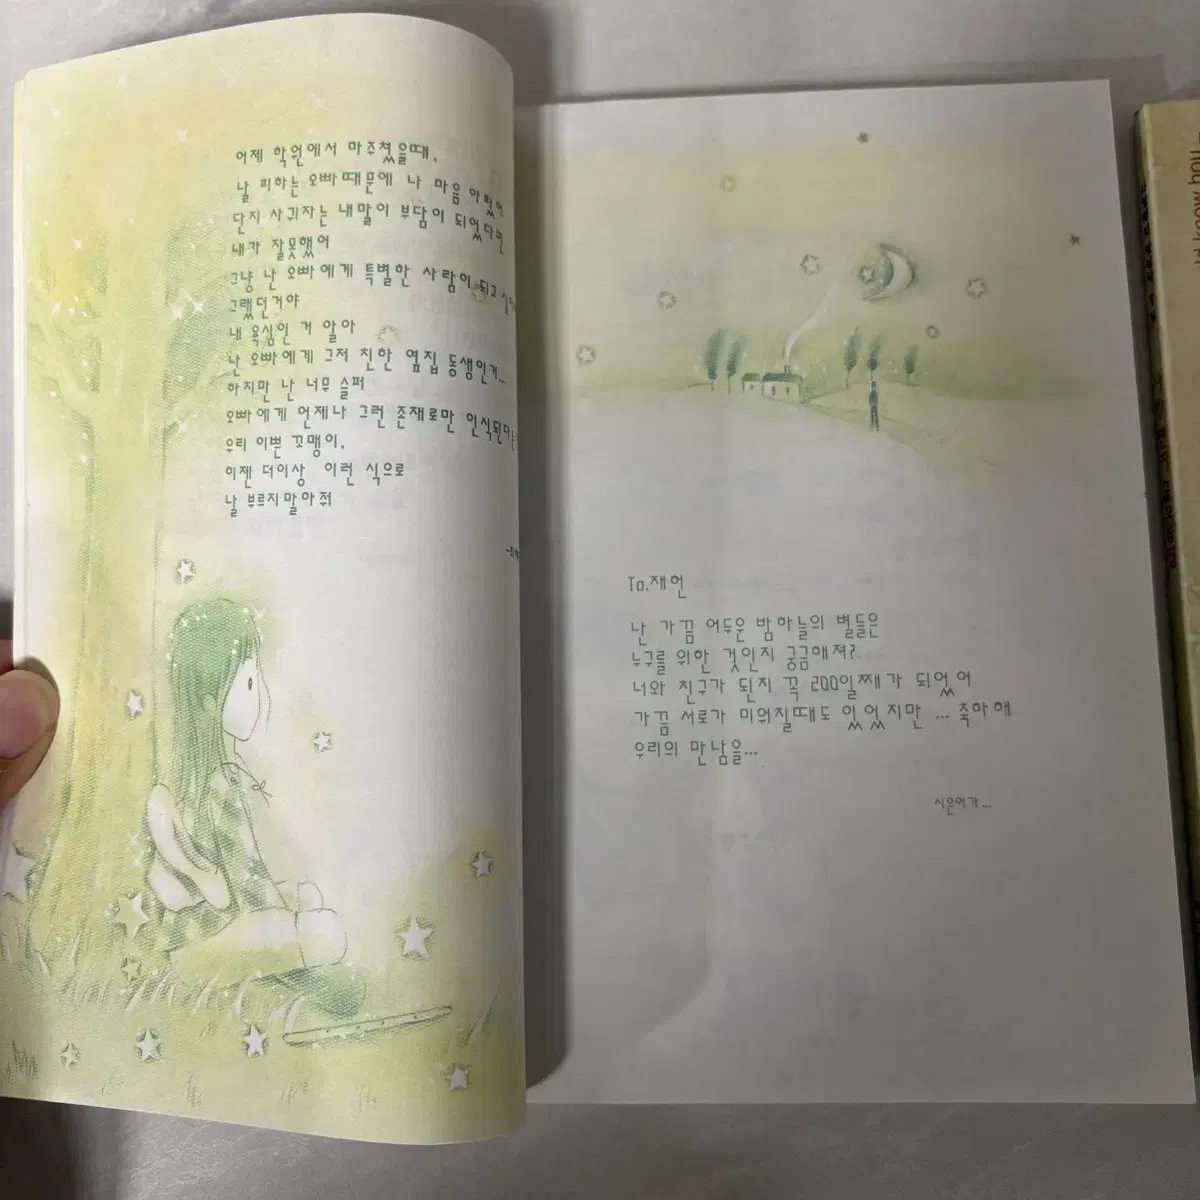 어제 학원에서 마주쳤을때,
날 피하는 오빠때문에 나 마음 아팠어
단지 사귀자는 내말이 부담이 되었다면
내가 잘못했어
그냥 난 오빠에게 특별한 사람이 되고싶어
그랬던거야
내 욕심인 거 알아
난 오빠에게 그저 친한 옆집 동생인거...
하지만 난 너무 슬퍼
오빠에게 언제나 그런 존재로만 인식된다는
우리 이쁜 꼬맹이,
이젠 더이상 이런 식으로
날 부르지말아줘
To.재헌
난 가끔 어두운 밤하늘의 별들은
누구를 위한 것인지 궁금해져?
너와 친구가 된지 꼭 200일째가 되었어
가끔 서로가 미워질때도 있었지만 ... 축하해
우리의 만남을...
시은이가...
ld know you